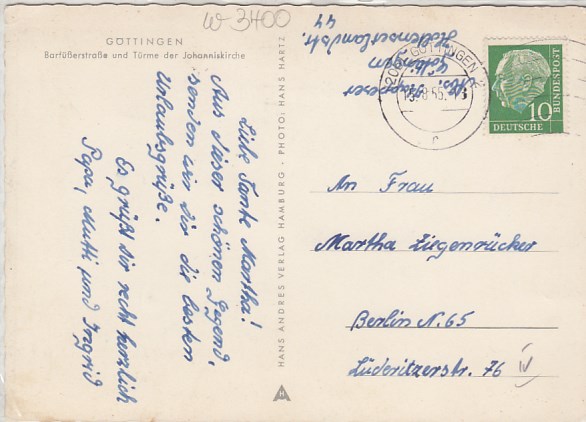 w-3400
GÖTTINGEN
Barfüßerstraße und Türme der Johanniskirche
Liebe Tante Martha!
Aus dieser schönen Gegend,
senden wir dir die besten
Urlaubsgrüße.
Es grüßt dir recht herzlich
Papa, Mutti und Ingrid
HANS ANDRES VERLAG HAMBURG · PHOTO: HANS HARTZ
44
Göttingen
GÖTTINGEN 2
DEUTSCHE
BUNDESPOST
10
An Frau
Martha Ziegenrücker
Berlin N. 65
Lüderitzerstr. 76 IV